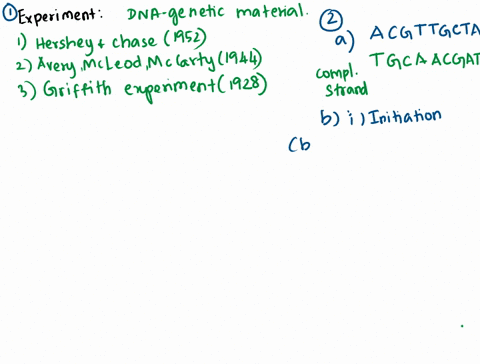 ① Experiment: DNA-genetic material.
1) Hershey & chase (1952)
2) Avery, McLeod, McCarty (1944)
3) Griffith experiment (1928)
②
a) ACGTTGCTA
TGCAACGAT
compl. strand
b) i) Initiation
(b